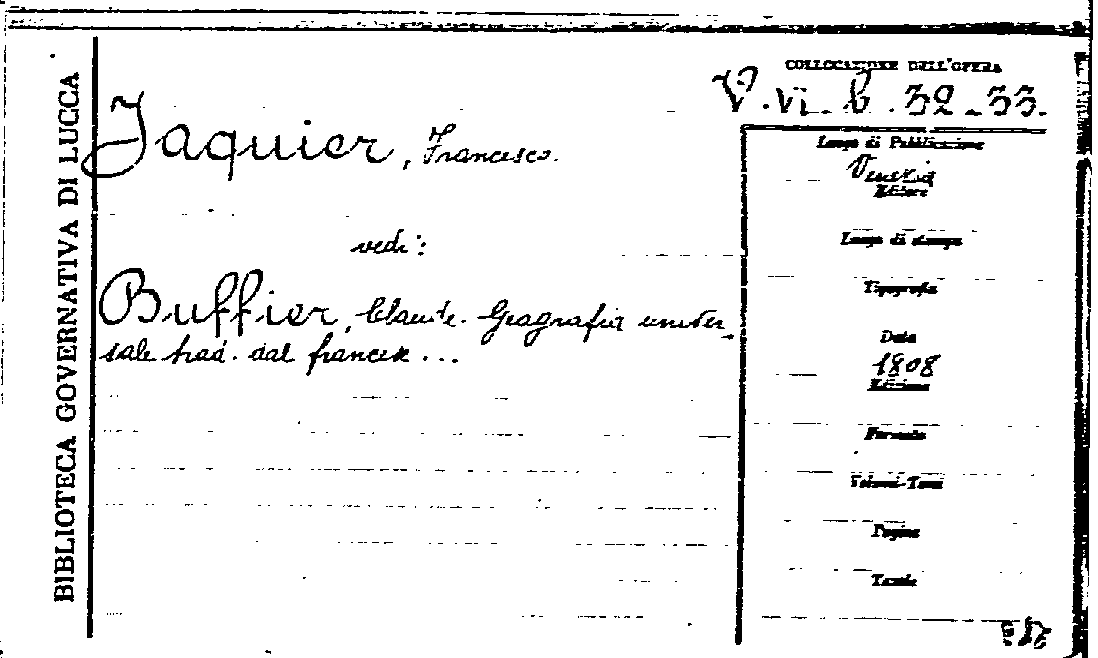 BIBLIOTECA GOVERNATIVA DI LUCCA
COLLOCAZIONE DELL'OPERA
V. VI. b. 32-33.
Jaquier, Francesco.
vedi:
Buffier, Claude. Geografia univer-
sale trad. dal francese...
Luogo di Pubblicazione
Venezia
Editore
Luogo di stampa
Tipografia
Data
1808
Edizione
Formato
Volumi-Tomi
Pagine
Tavole